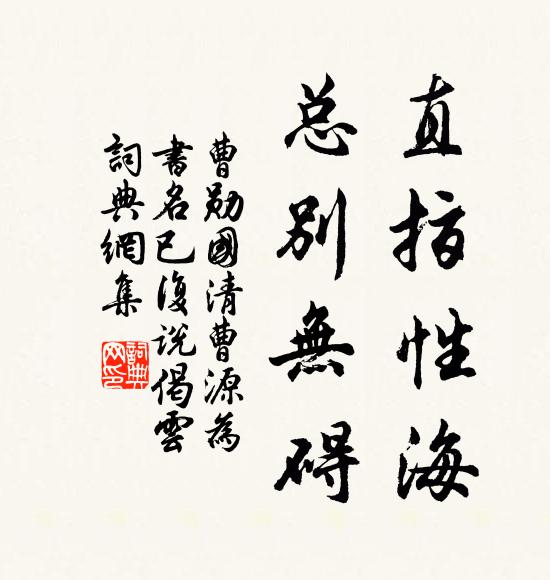 直指性海
总别無碍
曹勋國清曹源為
書名已復说偈雲
詞典網集
詞典網印